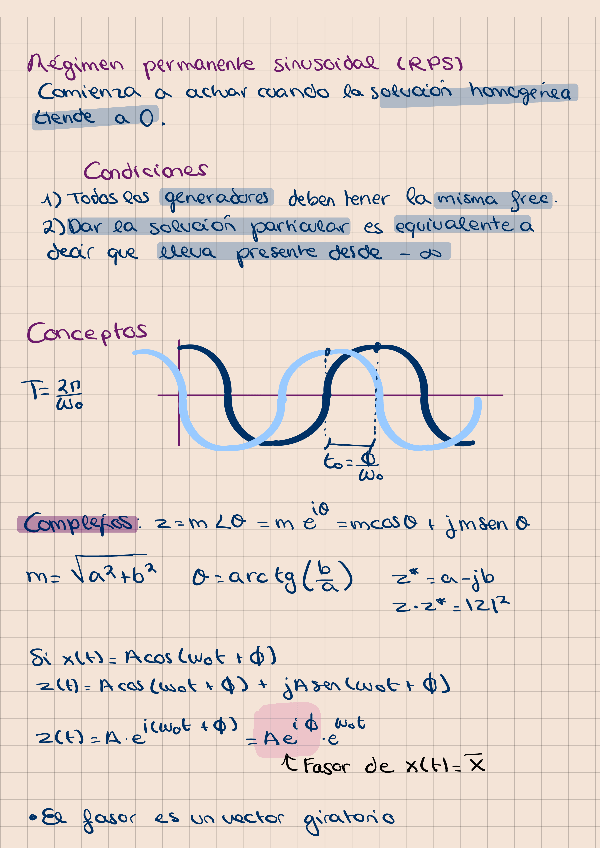 Régimen permanente sinusoidal (RPS)
Comienza a actuar cuando la solución homogénea
tiende a 0.
Condiciones
1) Todos los generadores deben tener la misma frec.
2) Dar la solución particular es equivalente a
decir que lleva presente desde -∞
Conceptos
T = 2π/ω₀
t₀ = ϕ/ω₀
Complejos: z = m∠θ = m e^{iθ} = m cos θ + j m sen θ
m = √(a²+b²) θ = arc tg (b/a) z* = a - jb
z·z* = |z|²
Si x(t) = A cos (ω₀t + ϕ)
z(t) = A cos (ω₀t + ϕ) + j A sen (ω₀t + ϕ)
z(t) = A·e^{i(ω₀t + ϕ)} = A e^{iϕ}·e^{ω₀t}
↑ Fasor de x(t) = x̄
• El fasor es un vector giratorio